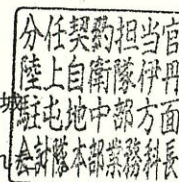 分任契約担当官
陸上自衛隊伊丹
城
駐屯地中部方面
会計隊本部業務科長